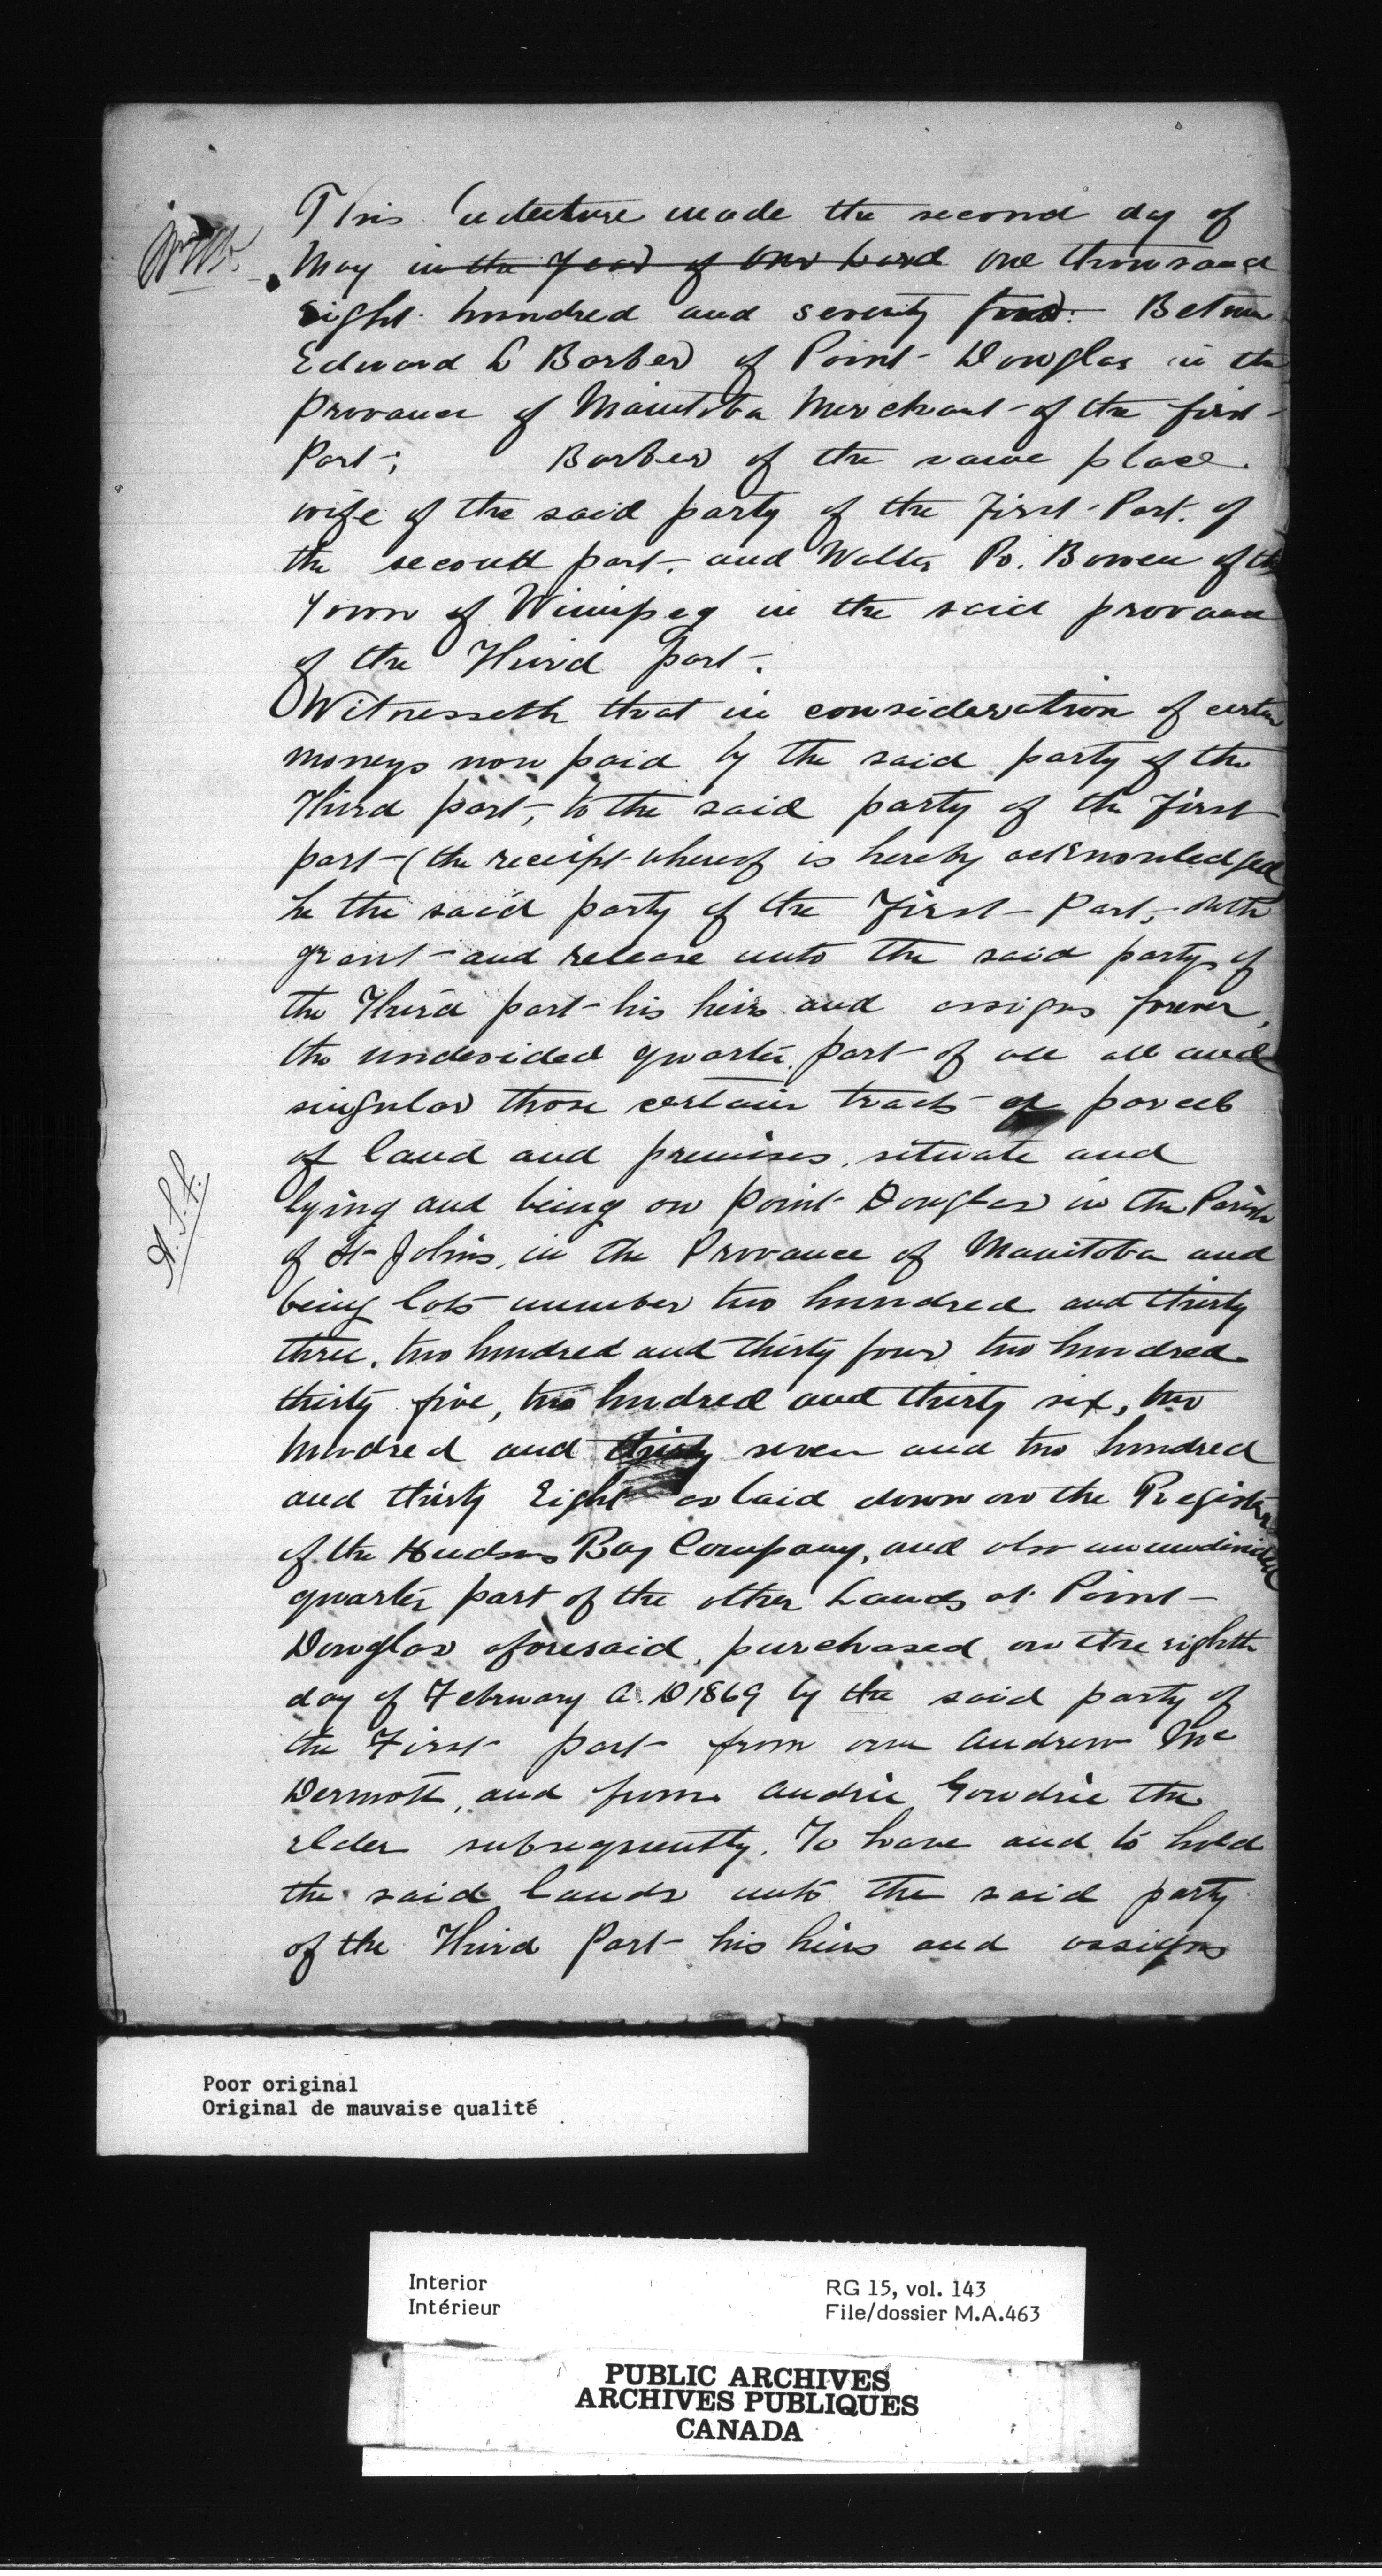 This Indenture made the second day of
May in the Year of Our Lord One thousand
eight hundred and seventy four. Between
Edward L Barber of Point Douglas in the
Provance of Manitoba Merchant of the first
Part; Barber of the same place
wife of the said party of the First Part. of
the second part. and Walter R. Bowen of the
Town of Winnipeg in the said provance
of the Third part.
Witnesseth that in consideration of certain
moneys now paid by the said party of the
Third part, to the said party of the First
part (the receipt whereof is hereby acknowledged
he the said party of the First Part, doth
grant and release unto the said party of
the Third part his heirs and assigns forever,
the undevided quarter part of all and
singular those certain tracts of parcels
of land and premises, situate and
lying and being on Point Douglas in the Parish
of St Johns, in the Provance of Manitoba and
A.S.F.
being lots number two hundred and thirty
three, two hundred and thirty four two hundred
thirty five, two hundred and thirty six, two
hundred and thirty seven and two hundred
and thirty Eight as laid down on the Register
of the Hudsons Bay Company, and also an undivided
quarter part of the other Lands at Point
Douglas aforesaid, purchased on the eighth
day of February A.D 1869 by the said party of
the First part from one Andrew Mc
Dermott, and from Andrie Gowdrie the
elder subsequently. To have and to hold
the said lands unto the said party
of the Third Part his heirs and assigns
Poor original
Original de mauvaise qualité
Interior
Intérieur
RG 15, vol. 143
File/dossier M.A.463
PUBLIC ARCHIVES
ARCHIVES PUBLIQUES
CANADA